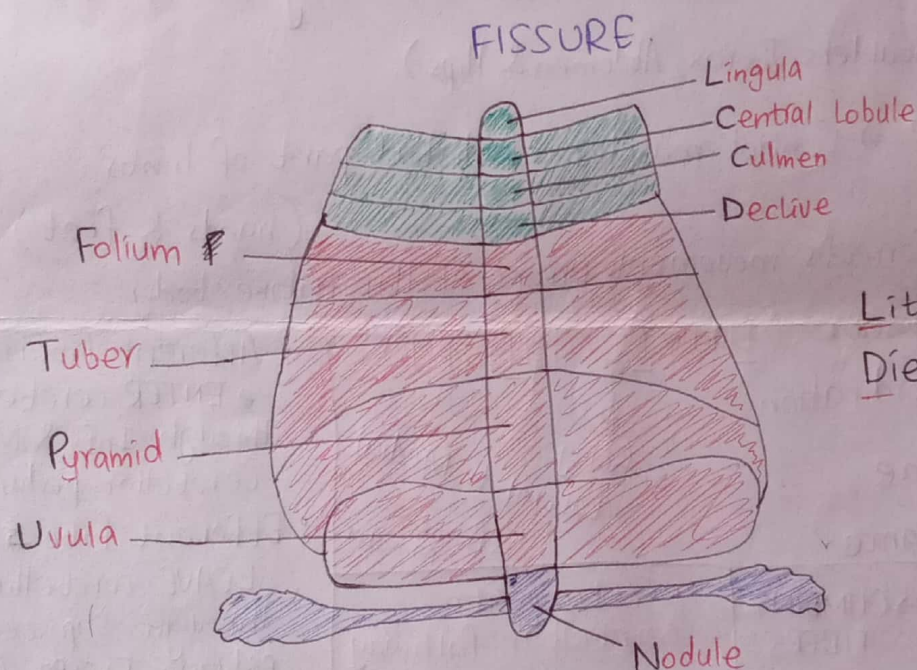 FISSURE
Lingula
Central Lobule
Culmen
Declive
Folium
Tuber
Pyramid
Uvula
Nodule
Lit
Die